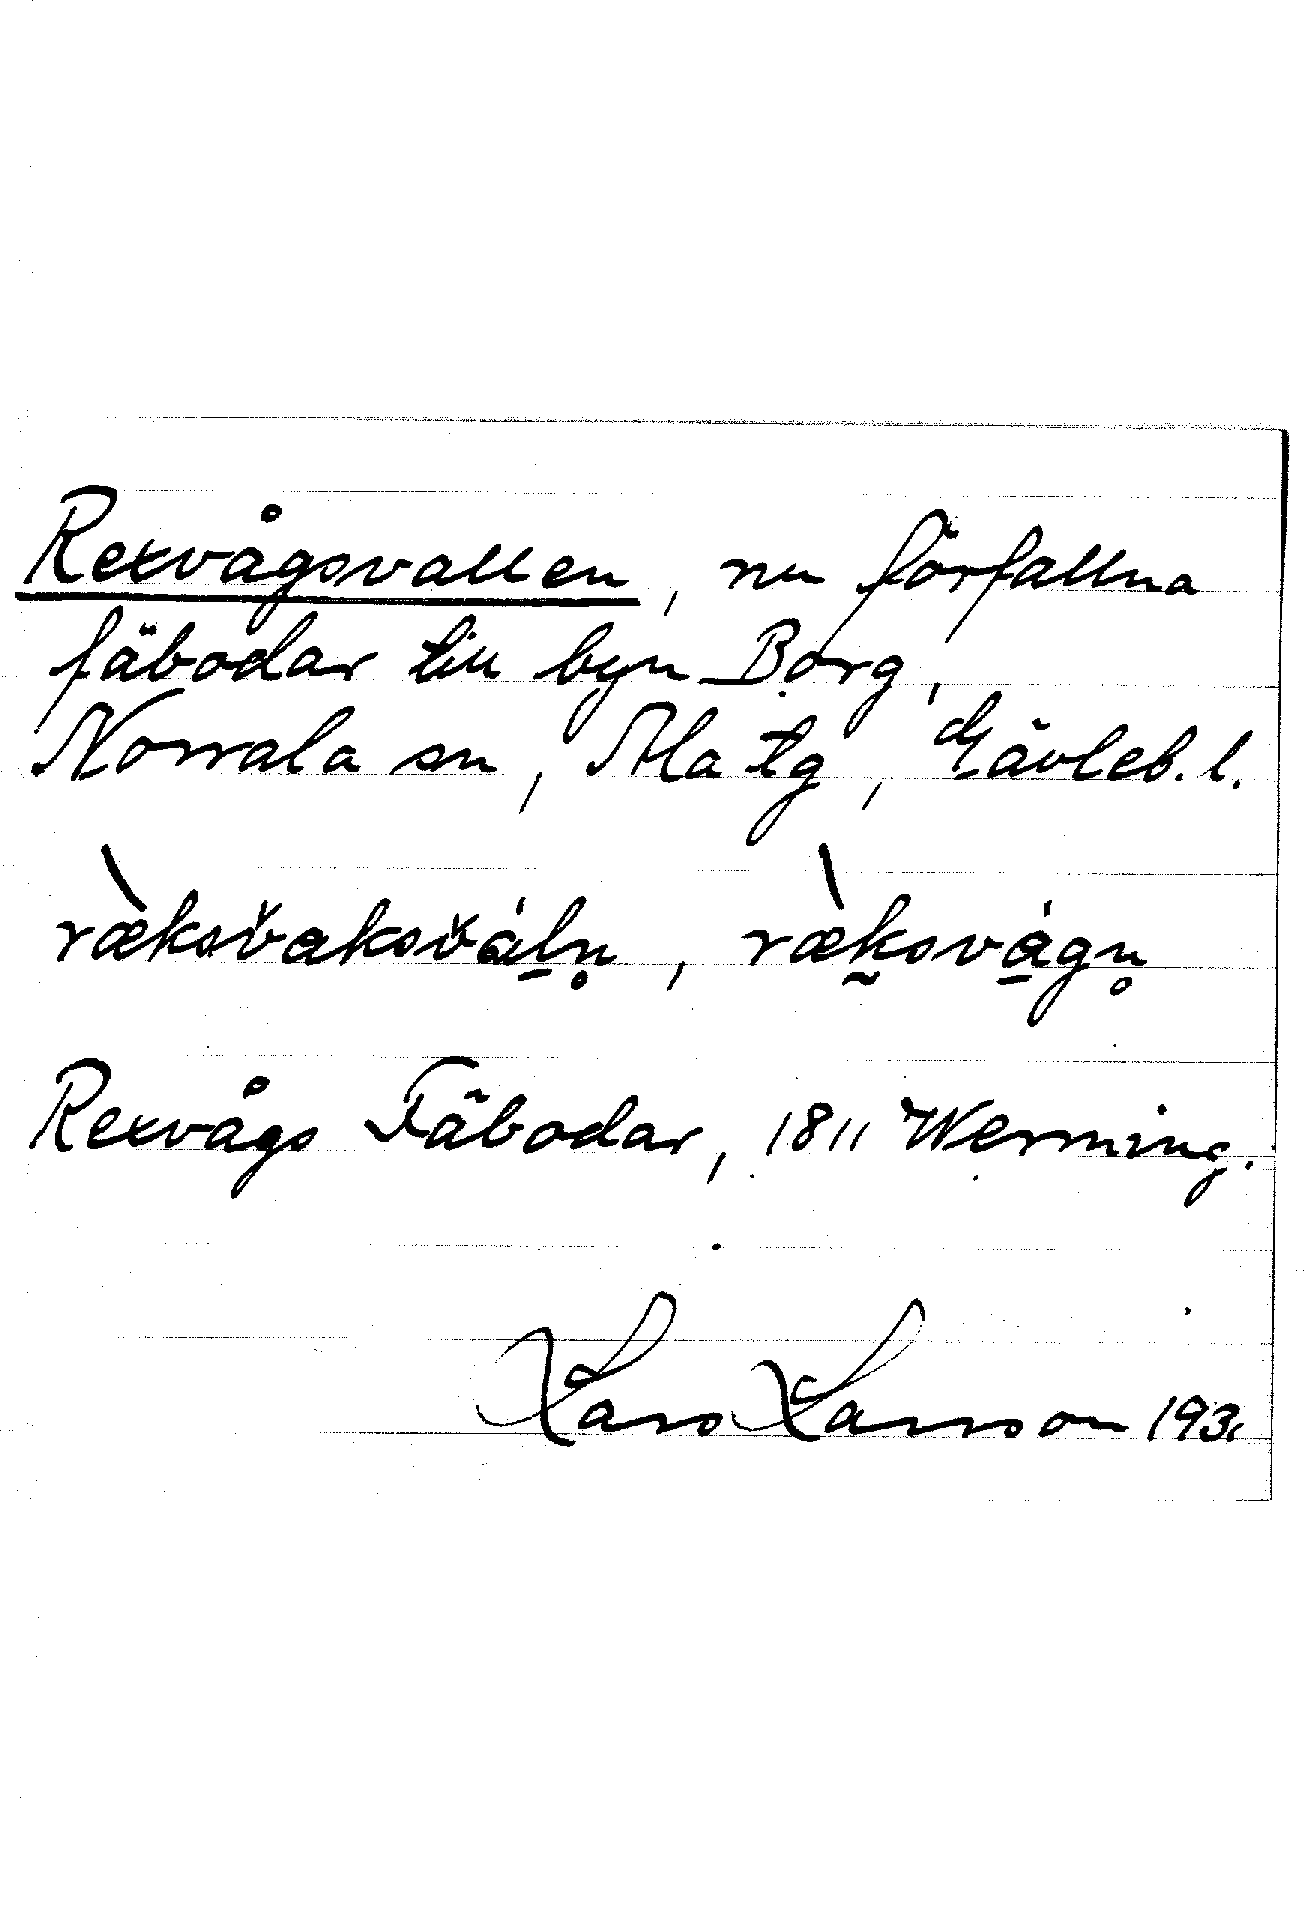 Rexvågsvallen, nu förfallna
fäbodar till byn Borg,
Norrala sn, Ala tg, Gävleb. l.
ræksvaksváln̥, ræksvágn̥
Rexvågs Fäbodar, 1811 Werming.
Lars Larsson 1931